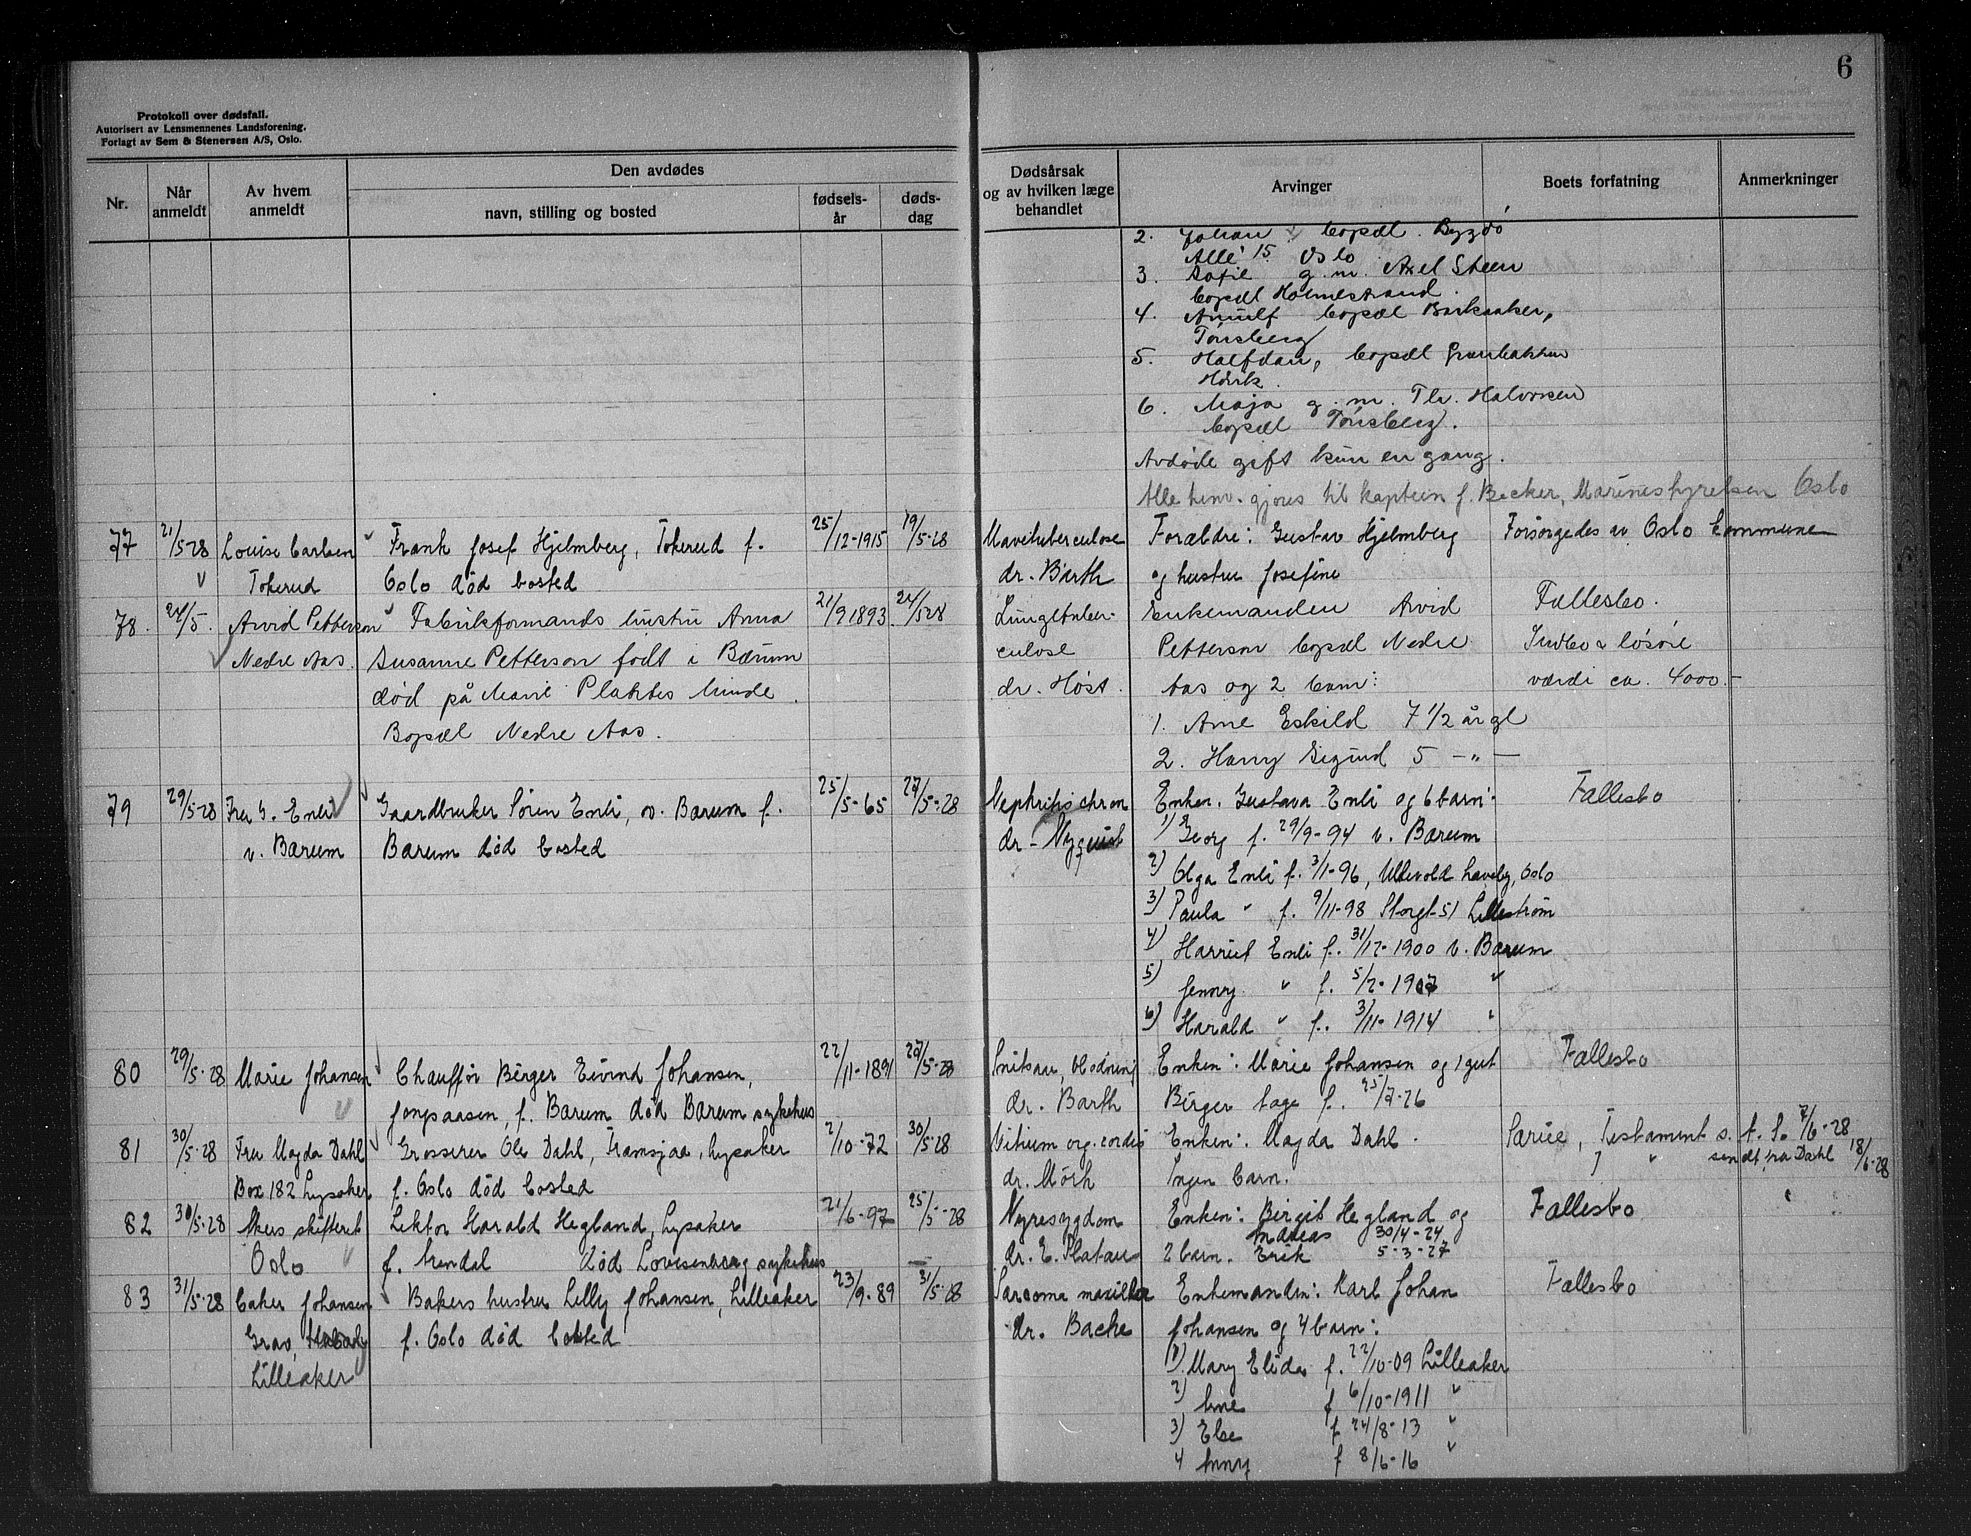 6
Protokoll over dødsfall.
Autorisert av Lensmennenes Landsforening.
Forlagt av Sem & Stenersen A/S, Oslo.
Nr.
Når anmeldt
Av hvem anmeldt
Den avdødes
navn, stilling og bosted
fødsels-år
døds-dag
Dødsårsak og av hvilken læge behandlet
Arvinger
Boets forfatning
Anmerkninger
2. Johan bopæl. Bygdö
Alle 15 Oslo
3. Sofie g.m. Axel Steen
bopæl Holmestrand.
4. Arnulf bopæl Barkaaker,
Tönsberg
5. Halfdan, bopæl
6. Maja g.m. Thv. Halvorsen
bopæl Tönsberg.
Avdöde gift kun en gang.
Alle henv. gjöres til kaptein J. Becker, Marinestyrelsen Oslo
77 21/5-28 Louise Carlsen Frank Josef Hjelmberg, Tokerud f. 25/12-1915 19/5-28 Mavetuberculose Forældre: Gustav Hjelmberg Forsorgedes av Oslo kommune
Tokerud Oslo död bosted dr. Barth og hustru Josefine
78. 24/5. Arvid Petterson Fabrikformands hustru Anna 21/9 1893. 24/5 28 Lungetuber- Enkemanden Arvid Fællesbo.
Nedre Aas. Susanne Petterson födt i Bærum culose Petterson bopæl Nedre Indbo & lösöre
död på Marie Plahtes Minde. dr. Höst. Aas og 2 barn: værdi ca. 4000.-
Bopæl Nedre Aas. 1. Arne Eskild 7 1/2 år gl
2. Harry Sigurd 5 - " -
79 29/5-28 Fru G. Enli Gaardbruker Sören Enli, v. Bærum f. 25/5-65 27/5-28 Nephritis chron Enken. Gustava Enli og 6 barn: Fællesbo
v. Bærum Bærum död bosted dr. Nyquist 1) Georg f. 29/9-94 v. Bærum
2) Olga Enli f. 3/1-96, Ullevold haveby, Oslo
3) Paula " f. 9/11-98 Storgt 51 Lilleström
4) Harriet Enli f. 31/12-1900 v. Bærum
5) Jenny. " f. 5/2-1907 "
6) Harald " f. 3/11-1914 "
80 29/5-28 Marie Johansen Chaufför Birger Eivind Johansen, 22/11-1891 27/5-28 Snitsaar, blödning Enken: Marie Johansen og 1 gut Fællesbo
Jongsaasen, f. Bærum död Bærum sykehus dr. Barth Birger Tage f. 25/7-26
81 30/5-28 Fru Magda Dahl Grosserer Ole Dahl, Framsjaa, Lysaker 2/10-72 30/5-28 Vitium org. cordis Enken: Magda Dahl. Særeie, Testament s. t. S. 7/6-28
Box 182 Lysaker f. Oslo död bosted dr. Mörk Ingen barn. " sendt fra Dahl 18/6-28
82 30/5-28 Akers skifteret Lektor Harald Hegland, Lysaker 21/6-97 25/5-28 Nyresygdom Enken: Birgit Hegland og Fællesbo
Oslo f. Arendal död Lovisenberg sykehus dr. E. Platau 2 barn. 30/4-24
Erik 5-3-27
83 31/5-28 Baker Johansen Bakers hustru Lilly Johansen, Lilleaker 23/9-89 31/5-28 Sarcoma maxillæ Enkemanden: Karl Johan Fællesbo
Grav, f. Oslo död bosted dr. Backe Johansen og 4 barn:
Lilleaker 1) Mary Elida f. 22/10-09 Lilleaker
2) Arne f 6/10-1911 "
3) Else f 24/8-13 "
4 Anny f 8/6-16 "